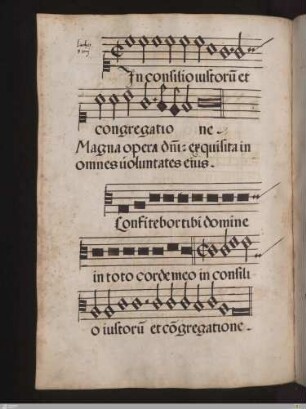 In consilio iustorũ et
congregatio ne
Magna opera dñi: exquisita in
omnes uoluntates eius.
Confitebor tibi domine
in toto corde meo in consili
o iustorũ et cõgregatione